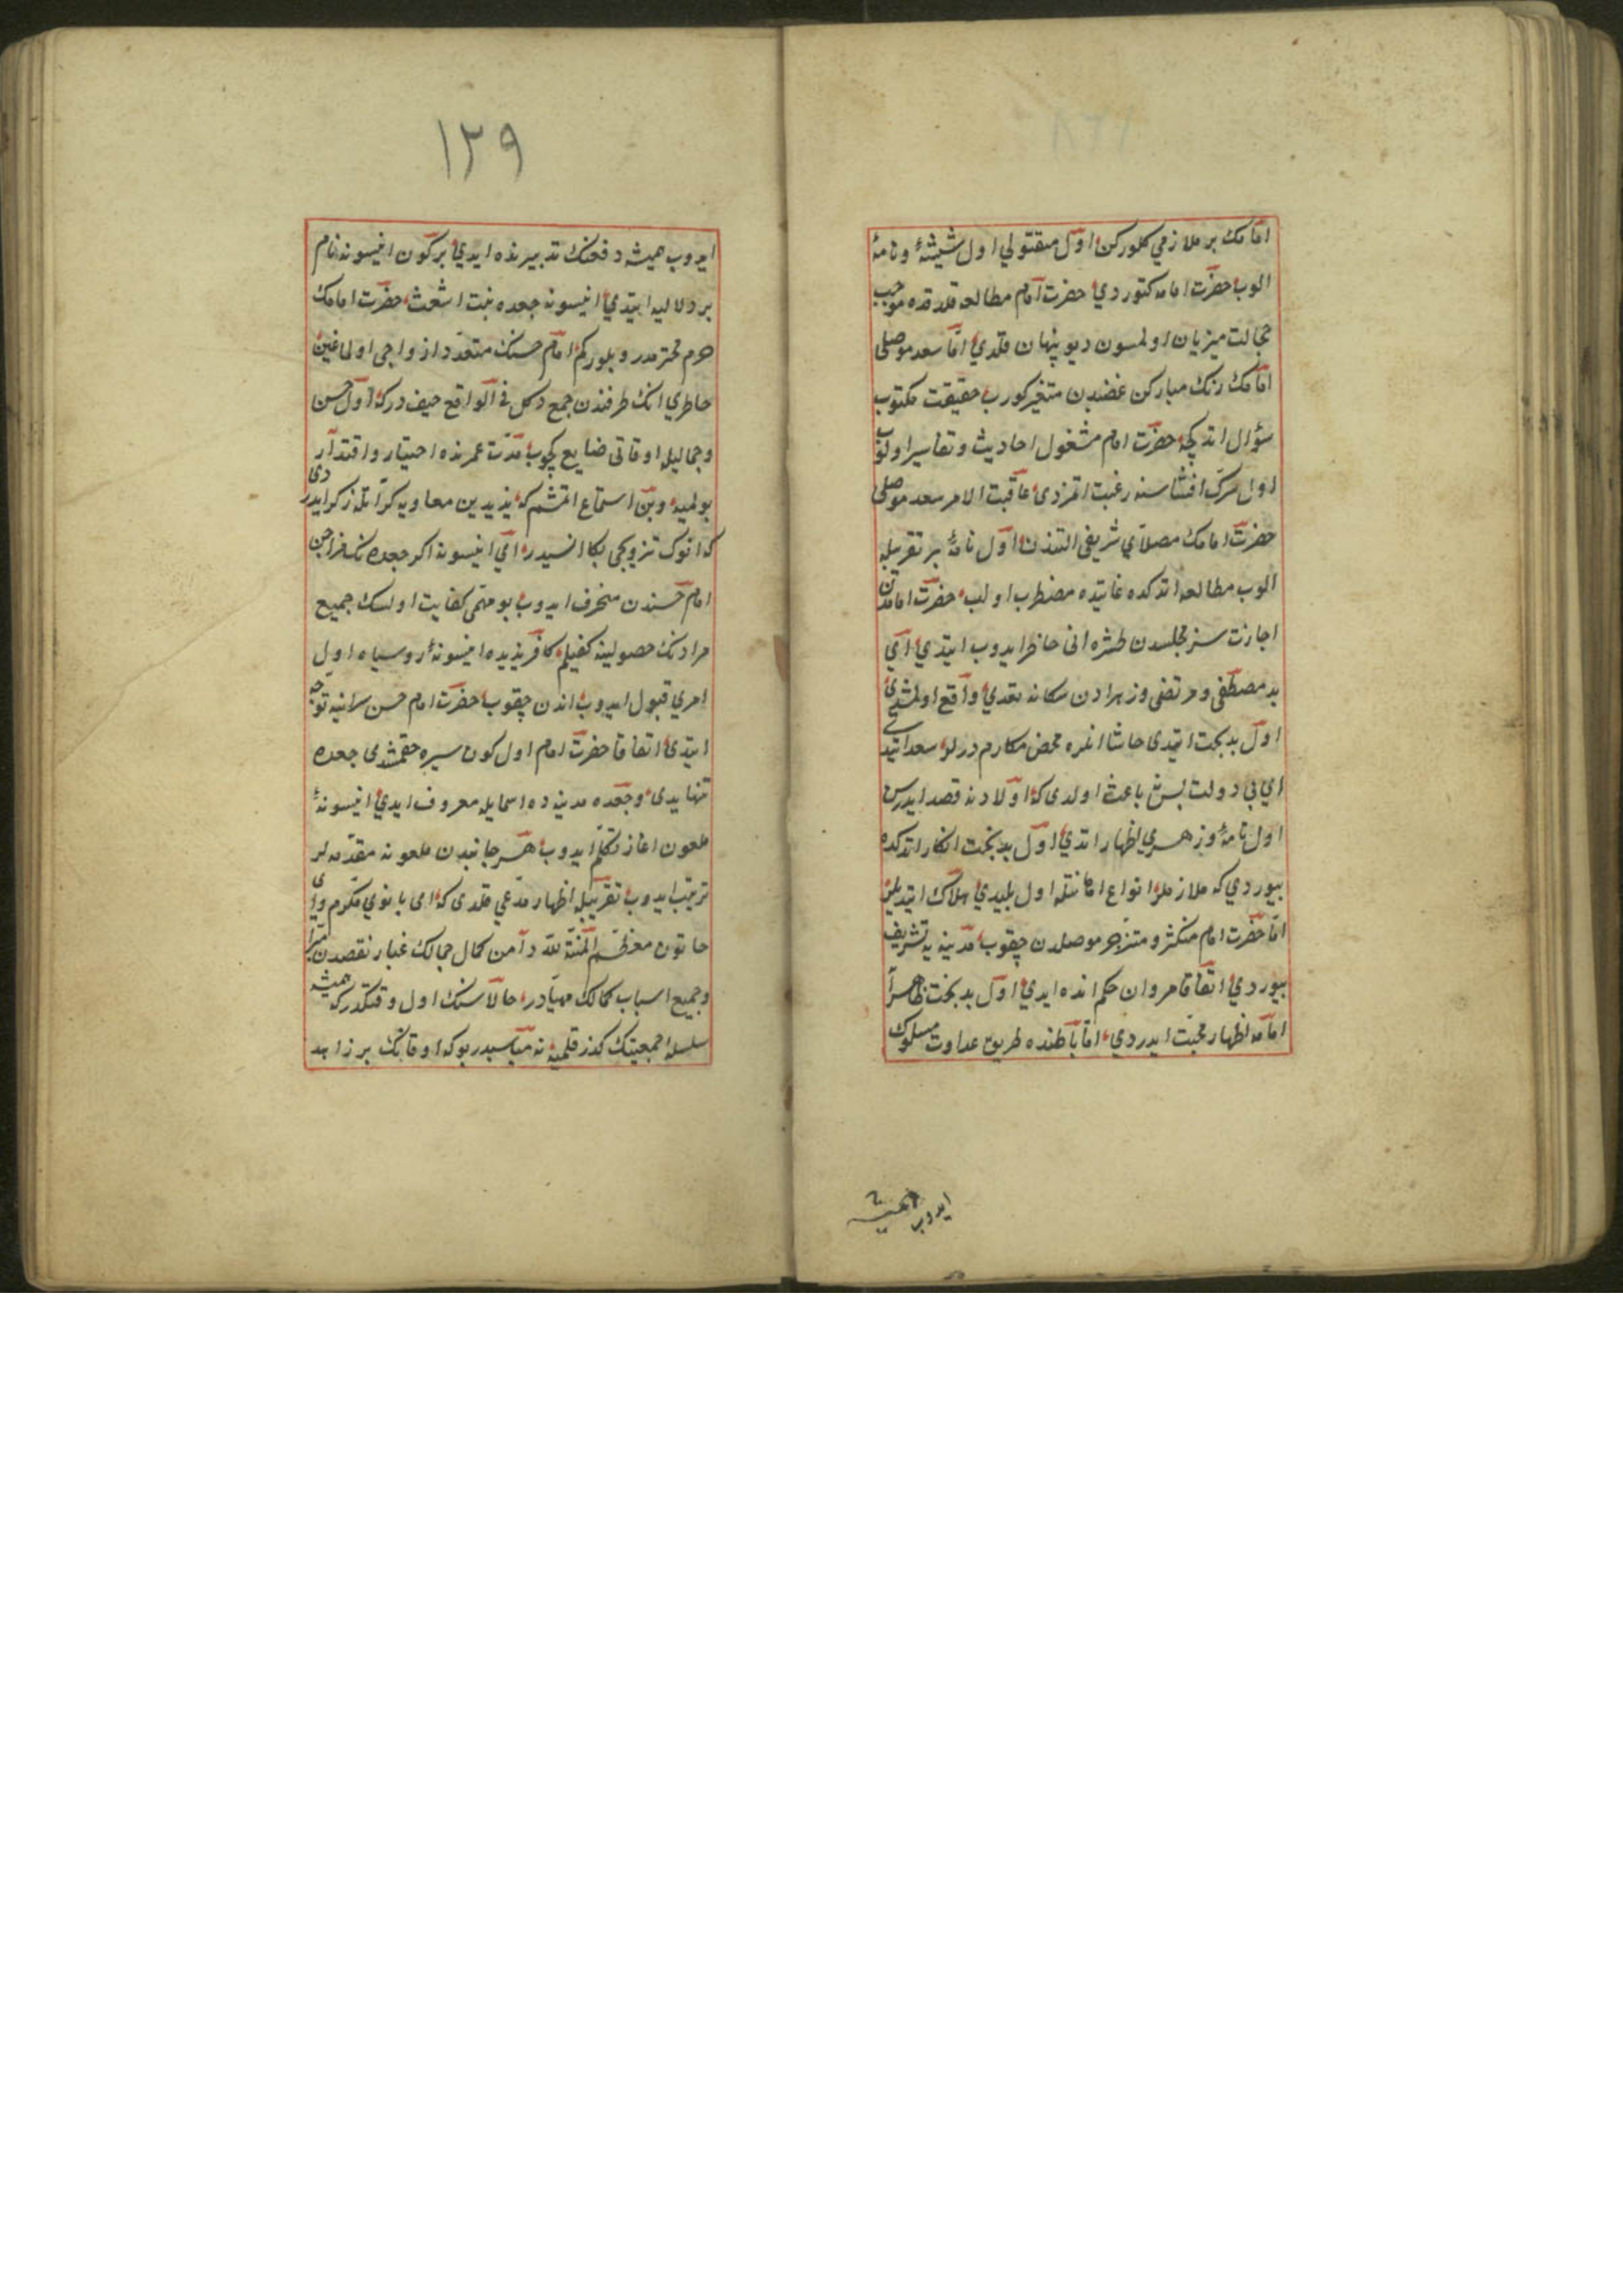 امامك بر ملازمی کلورکن اول مقتولی اول شیشهٔ و نامهٔ
الوب حضرت امامه کتوردی حضرت امام مطالعه قلدقده موجب
خجالت میزبان اولمسون دیو پنهان قلدی اما سعد موصلی
امامك رنك مبارکن غضبدن متغیر کورب حقیقت مکتوب
سؤال اتدکچه حضرت امام مشغول احادیث و تفاسیر اولوب
اول سرک افشاسنه رغبت اتمزدی عاقبت الامر سعد موصلی
حضرت امامك مصلای شریفی التندن اول نامهٔ بر تقریبله
الوب مطالعه اتدکده غایتده مضطرب اولب حضرت امامدن
اجازت سز مجلسدن طشره انی حاظر ایدوب ایتدی ای
بد مصطفی و مرتضی و زهرادن سکا نه تعدی واقع اولمشدی
اول بدبخت ایتدی حاشا انلره محض مکارم درلر سعد ایتدی
ای بی دولت پس نه باعث اولدی که اولادنه قصد ایدرسن
اول نامهٔ و زهری اظهار اتدی اول بدبخت انکار اتدکده
بیوردی که ملازملر انواع اهانتله اول پلیدی هلاك ایتدیلر
اما حضرت امام منکسر و متزجر موصلدن چقوب مدینه یه تشریف
بیوردی اتفاقا مروان حکم انده ایدی اول بدبخت ظاهرا
امامه اظهار محبت ایدردی اما باطنده طریق عداوت مسلوك
ایدوب همیشه
١٢٩
ایدوب همیشه دفعنك تدبیرنده ایدی بر کون افیسونه نام
بر دلالیه ایتدی افیسونه جعده بنت اشعث حضرت امامك
حرم محترمدر و بلورکم امام حسنك متعدد ازواجی اولماغین
خاطری انك طرفندن جمع دکل فی الواقع حیف درکه اول حسن
و جمالیله اوقاتی ضایع کچوب مدت عمرنده اختیار و اقتدار
بولمیه و بن استماع اتمشم که یزید بن معاویه کراتله ذکر ایدردی
که انوک تزویجی بکا انسبدر ای افیسونه اکر جعده نك مزاجن
امام حسندن منحرف ایدوب بو مهمی کفایت اولسك جمیع
مرادنك حصولینه کفیلم کافر یزیده افیسونهٔ روسیاه اول
امری قبول ایدوب اندن چقوب حضرت امام حسن سرانیه توجه
ایتدی اتفاقا حضرت امام اول کون سیره چقمشدی جعده
تنهایدی و جعده مدینه ده اسمایله معروف ایدی افیسونهٔ
ملعون اغاز تکلم ایدوب هر جانبدن ملعونه مقدمه لر
ترتیب ایدوب تقریبله اظهار مدعی قلدی که ای بانوی مکرم و ای
خاتون معظم المنة لله دامن کمال جمالك غبار نقصدن مبرا
و جمیع اسباب کمالك مهیادر حالا سنك اول وقتکدرکه همیشه
سلسلهٔ جمعیتك کذر قلمیه نه مناسبدر بوکه اوقاتك بر زاهد